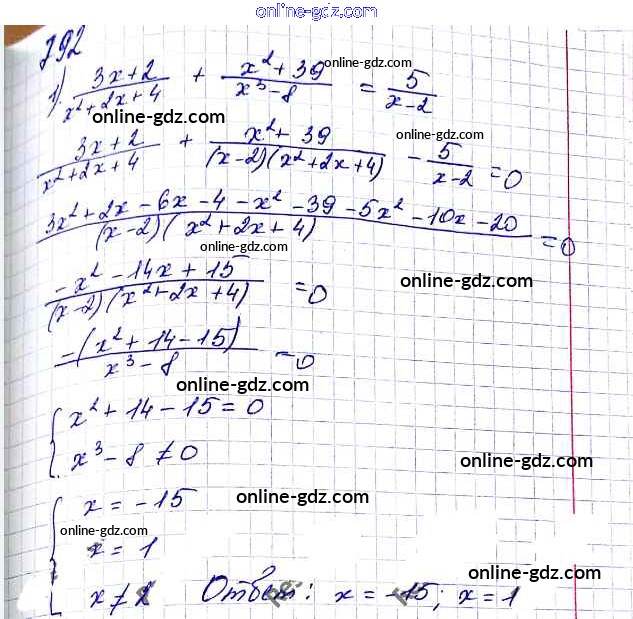 online-gdz.com
792
1) (3x+2)/(x²+2x+4) + (x²+39)/(x³-8) = 5/(x-2)
online-gdz.com
online-gdz.com
(3x+2)/(x²+2x+4) + (x²+39)/((x-2)(x²+2x+4)) - 5/(x-2) = 0
online-gdz.com
(3x²+2x-6x-4-x²-39-5x²-10x-20)/((x-2)(x²+2x+4)) = 0
online-gdz.com
(-x²-14x+15)/((x-2)(x²+2x+4)) = 0
online-gdz.com
(-(x²+14-15))/(x³-8) = 0
online-gdz.com
{ x²+14-15=0
online-gdz.com
x³-8≠0
online-gdz.com
{ x=-15
online-gdz.com
online-gdz.com
x=1
online-gdz.com
x≠2 Ответ: x=-15; x=1